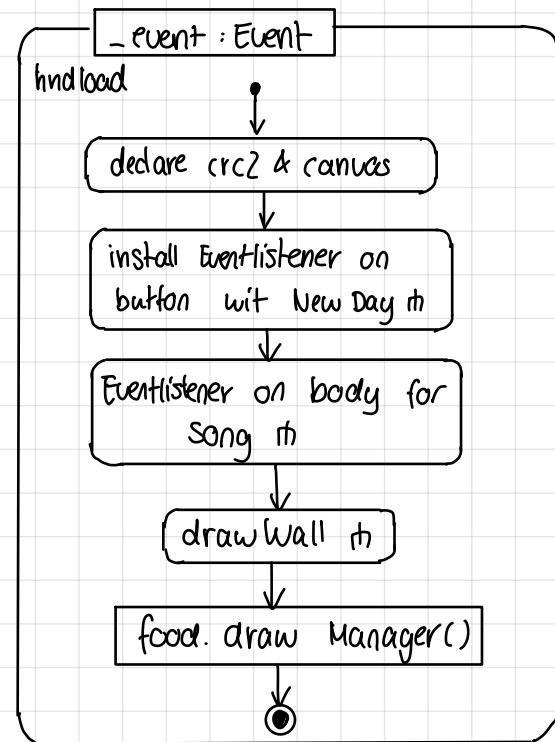 _event : Event
hndload
declare crc2 & canvas
install Eventlistener on
button wit New Day
Eventlistener on body for
song
draw Wall
food. draw Manager()